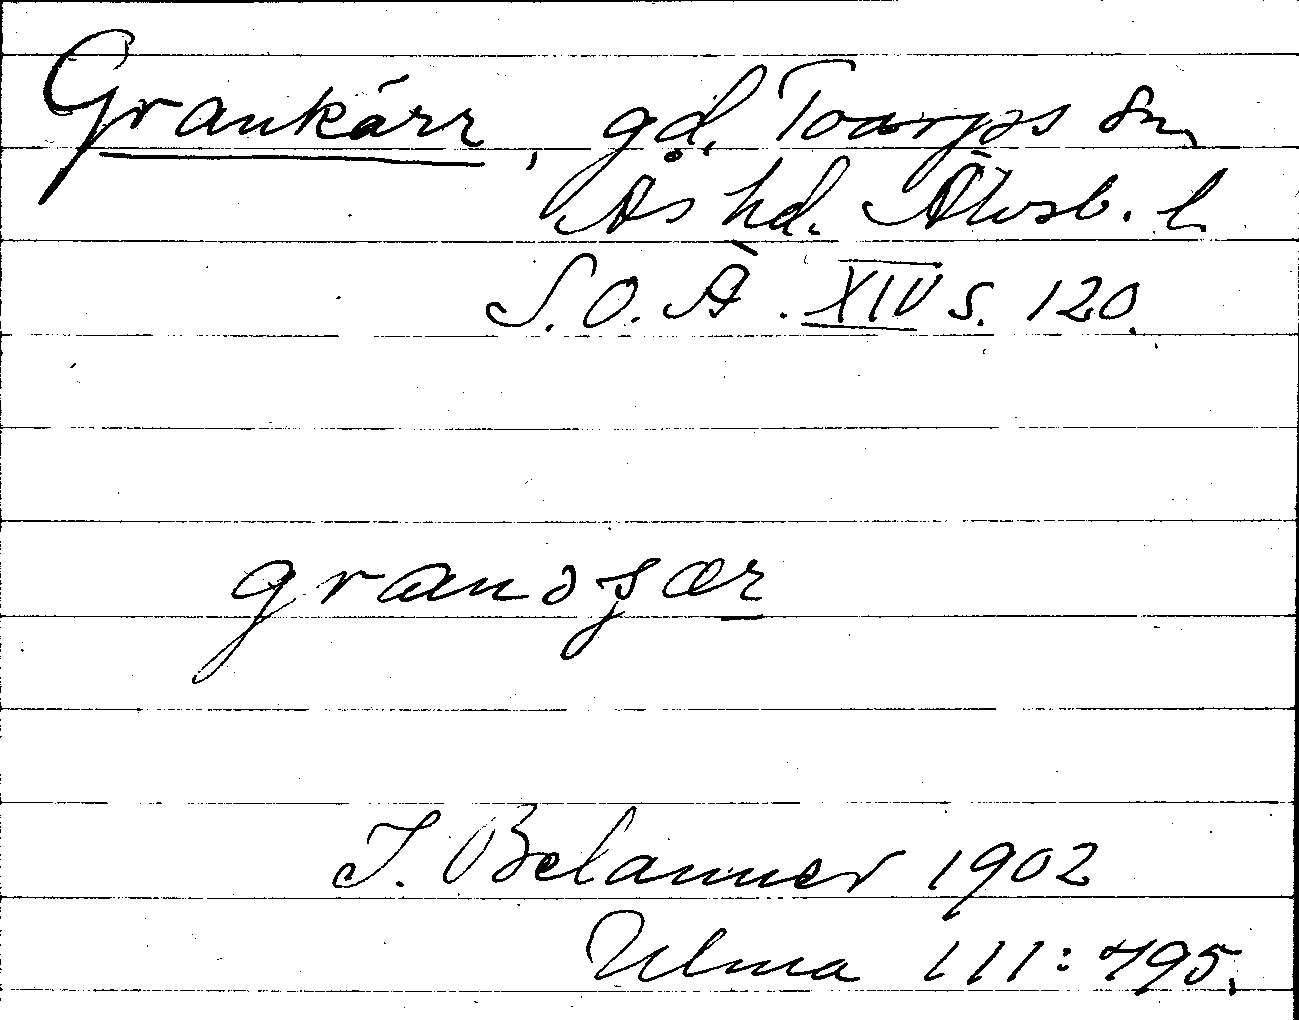 Grankärr, gd, Toarps sn,
Ås hd. Älvsb. l.
S.O.Ä. XIV s. 120.
J. Belanner 1902
Ulma 111:795.